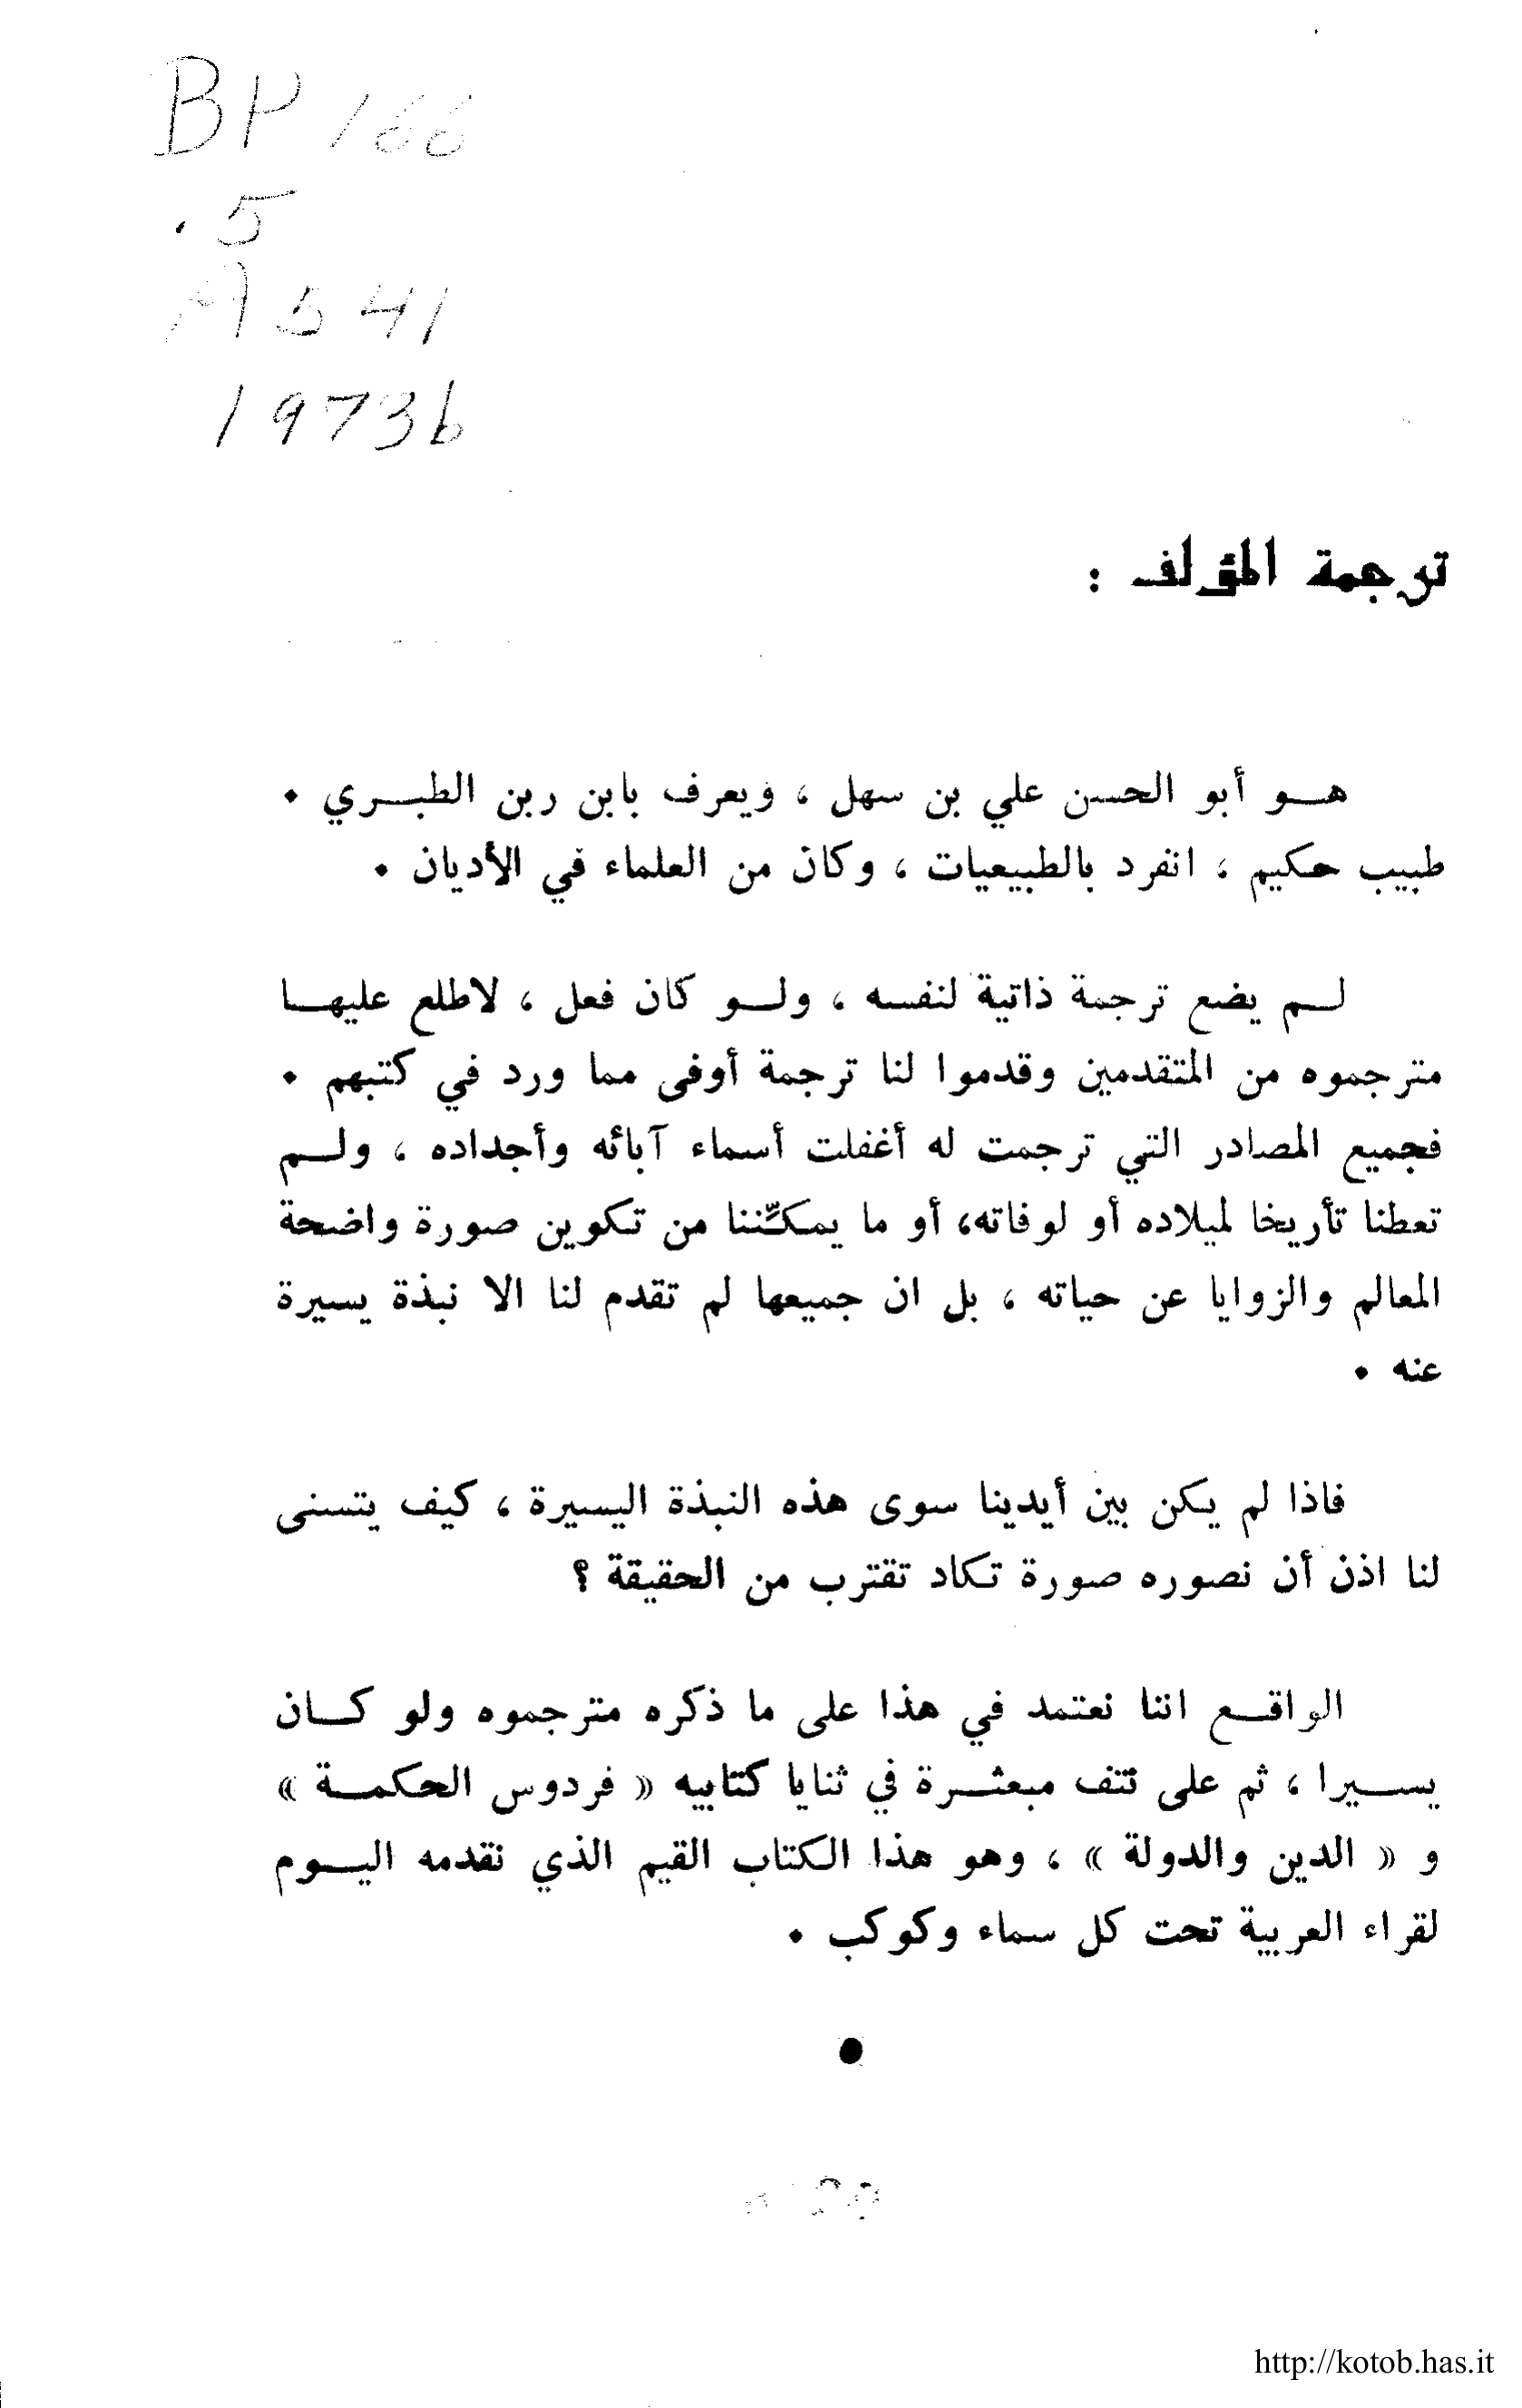 BP 166
.5
A541
1973b
ترجمة المؤلف :
هو أبو الحسن علي بن سهل ، ويعرف بابن ربن الطبري .
طبيب حكيم ، انفرد بالطبيعيات ، وكان من العلماء في الأديان .
لم يضع ترجمة ذاتية لنفسه ، ولو كان فعل ، لاطلع عليها
مترجموه من المتقدمين وقدموا لنا ترجمة أوفى مما ورد في كتبهم .
فجميع المصادر التي ترجمت له أغفلت أسماء آبائه وأجداده ، ولم
تعطنا تأريخا لميلاده أو لوفاته، أو ما يمكّننا من تكوين صورة واضحة
المعالم والزوايا عن حياته ، بل ان جميعها لم تقدم لنا الا نبذة يسيرة
عنه .
فاذا لم يكن بين أيدينا سوى هذه النبذة اليسيرة ، كيف يتسنى
لنا اذن أن نصوره صورة تكاد تقترب من الحقيقة ؟
الواقع اننا نعتمد في هذا على ما ذكره مترجموه ولو كان
يسيرا ، ثم على نتف مبعثرة في ثنايا كتابيه « فردوس الحكمة »
و « الدين والدولة » ، وهو هذا الكتاب القيم الذي نقدمه اليوم
لقراء العربية تحت كل سماء وكوكب .
http://kotob.has.it